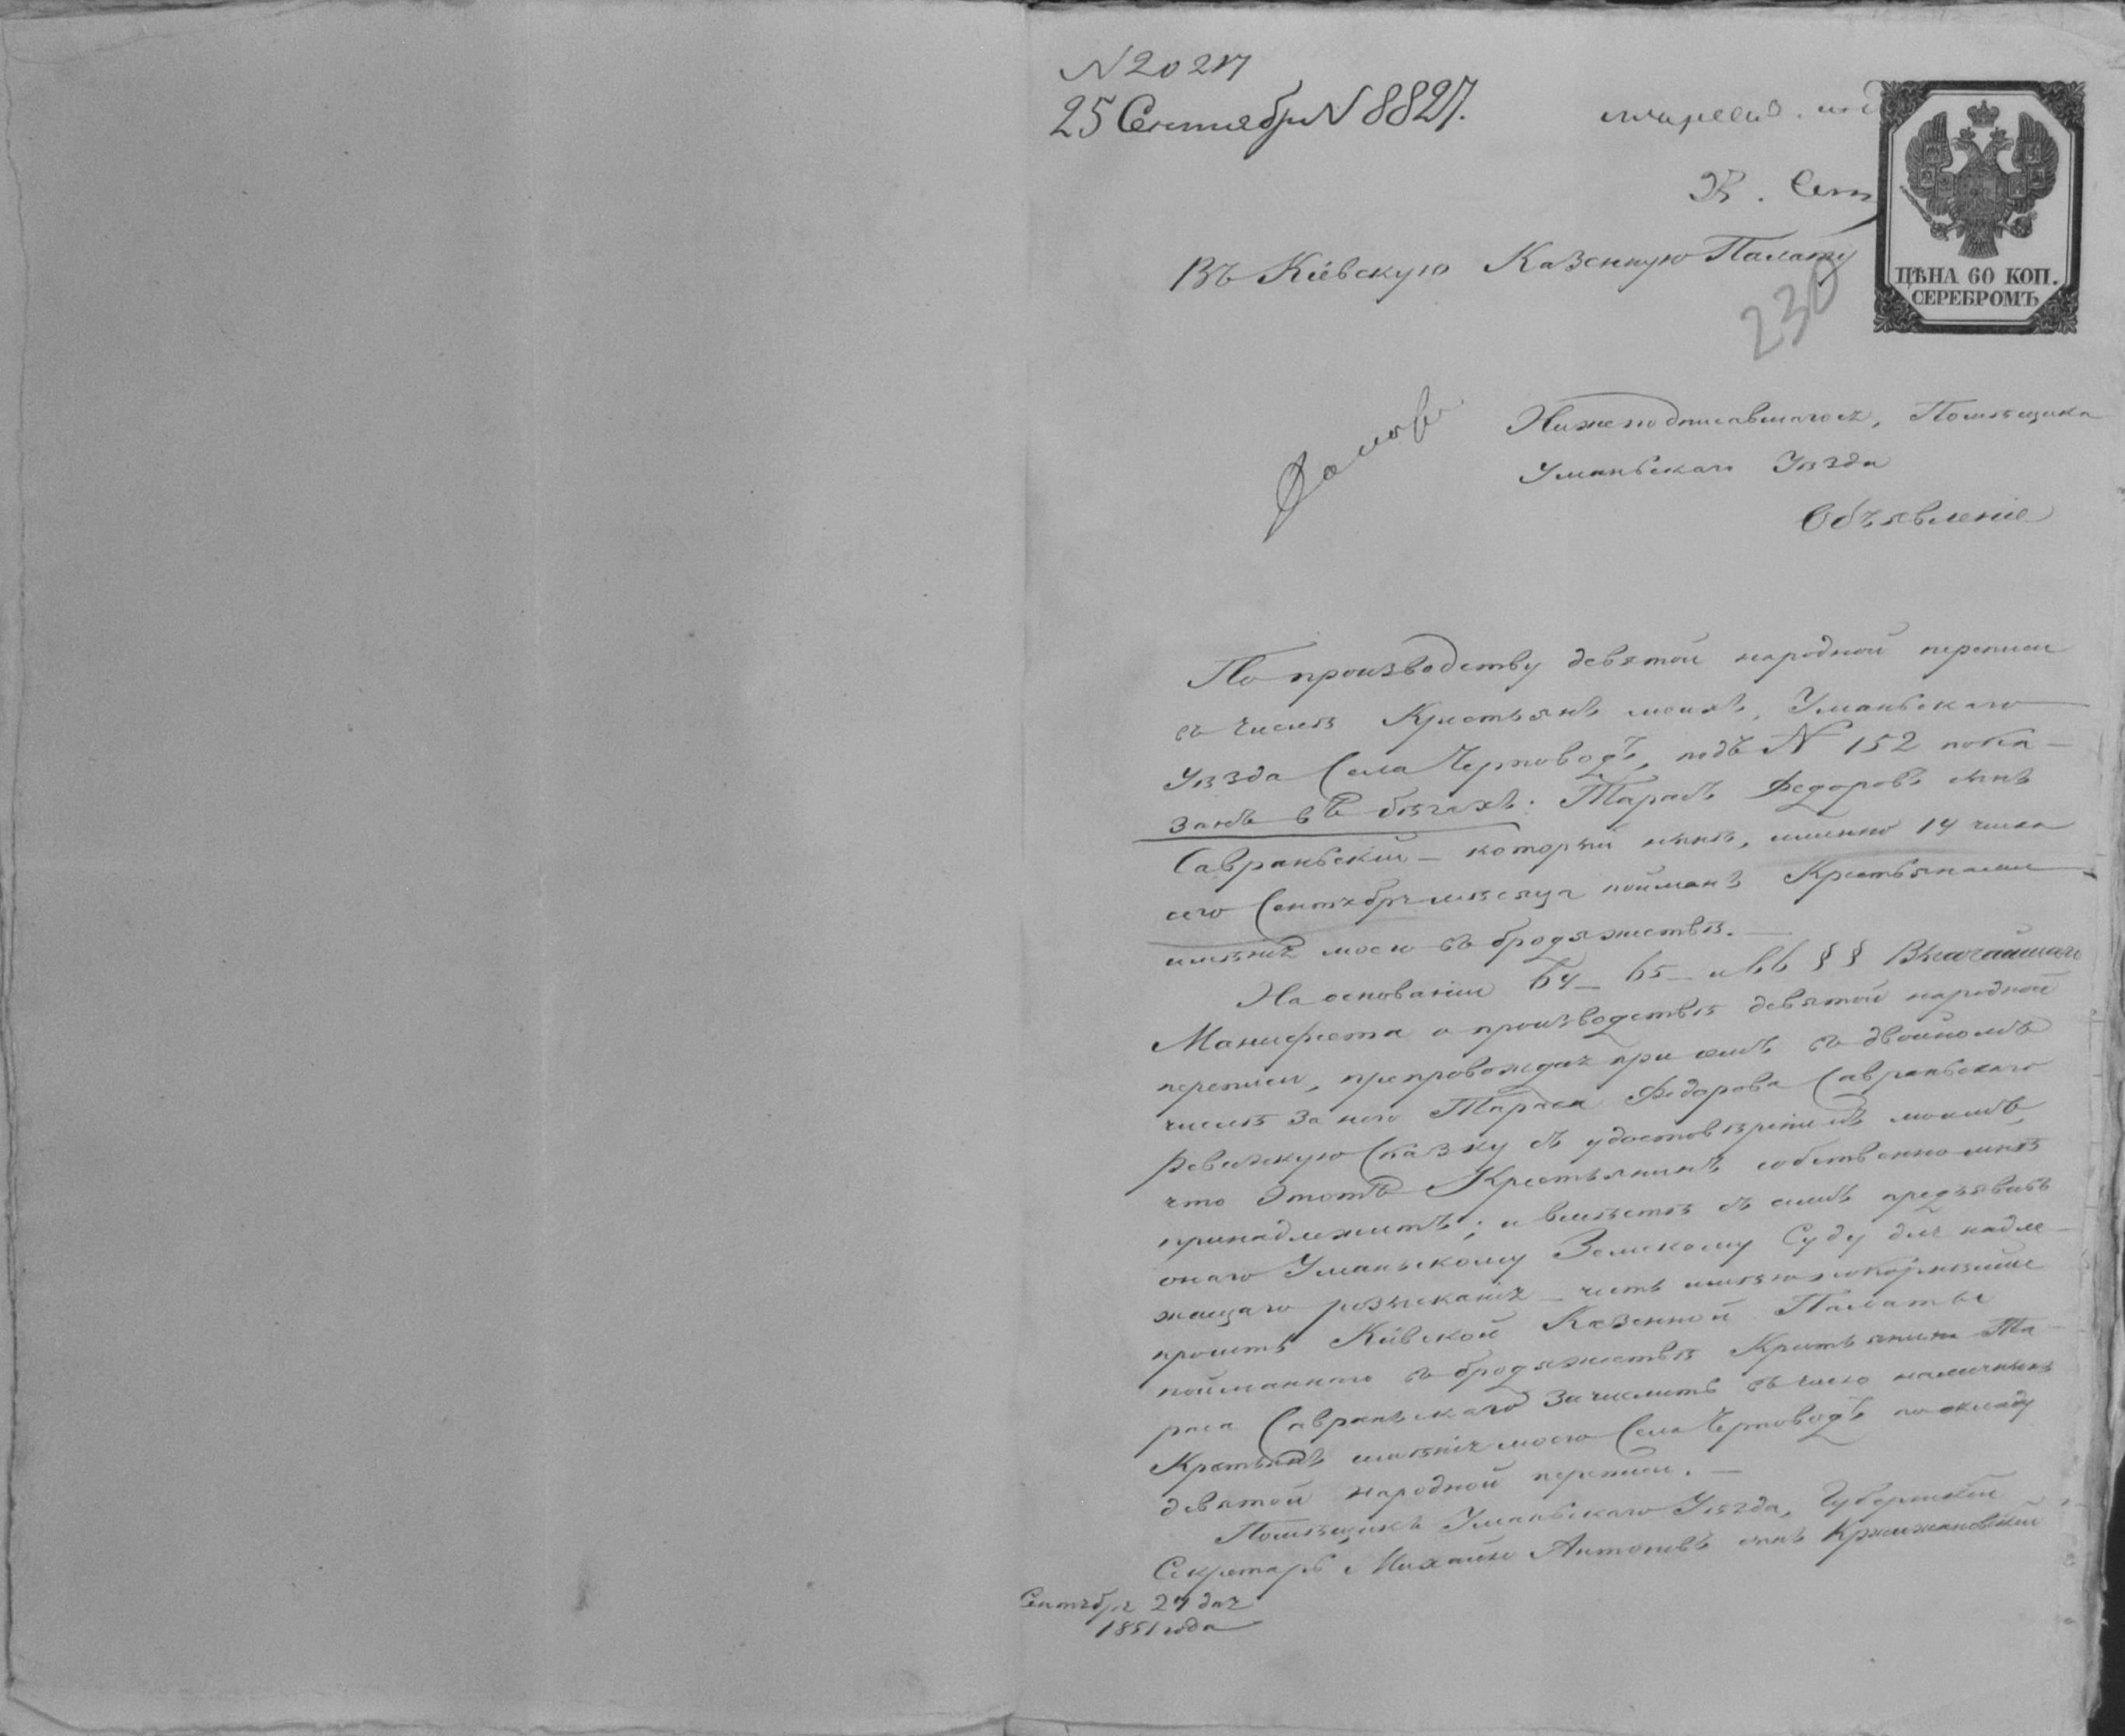 N 20217
25 Сентября N 8827.
ЦѢНА 60 КОП.
СЕРЕБРОМЪ
Въ Кіевскую Казенную Палату
230
Нижеподписавшагося, Помѣщика
Уманьскаго Уѣзда
Объявленіе
По производству девятой народной переписи
въ числѣ Крестьянъ моихъ, Уманьскаго
Уѣзда Села Черповодъ, подъ N 152 пока-
занъ въ бѣгахъ: Тарасъ Федоровъ сынъ
Савраньскій – который нынѣ, именно 14 числа
сего Сентября мѣсяца пойманъ Крестьянами
имѣнія моего въ бродяжествѣ. –
На основаніи 64 – 65 – и 66 §§ Высочайшаго
Манифеста о производствѣ девятой народной
переписи, препровождая при семъ въ двойномъ
числѣ за него Тараса Федорова Савраньскаго
Ревизкую Сказку съ удостовѣреніемъ моимъ,
что этотъ Крестьянинъ собственно мнѣ
принадлежитъ; и вмѣстѣ съ симъ предъявивъ
онаго Уманьскому Земскому Суду для надле-
жащаго розысканія – честь имѣю покорнѣйше
просить Кіевской Казенной Палаты
пойманнаго въ бродяжествѣ Крестьянина Та-
раса Савраньскаго зачислить въ число наличныхъ
Крестьянъ имѣнія моего Села Черповодъ по окладу
девятой народной переписи. –
Помѣщикъ Уманьскаго Уѣзда, Губернскій
Секретарь Михаилъ Антоновъ сынъ Кржижановскій
Сентября 24 дня
1851 года